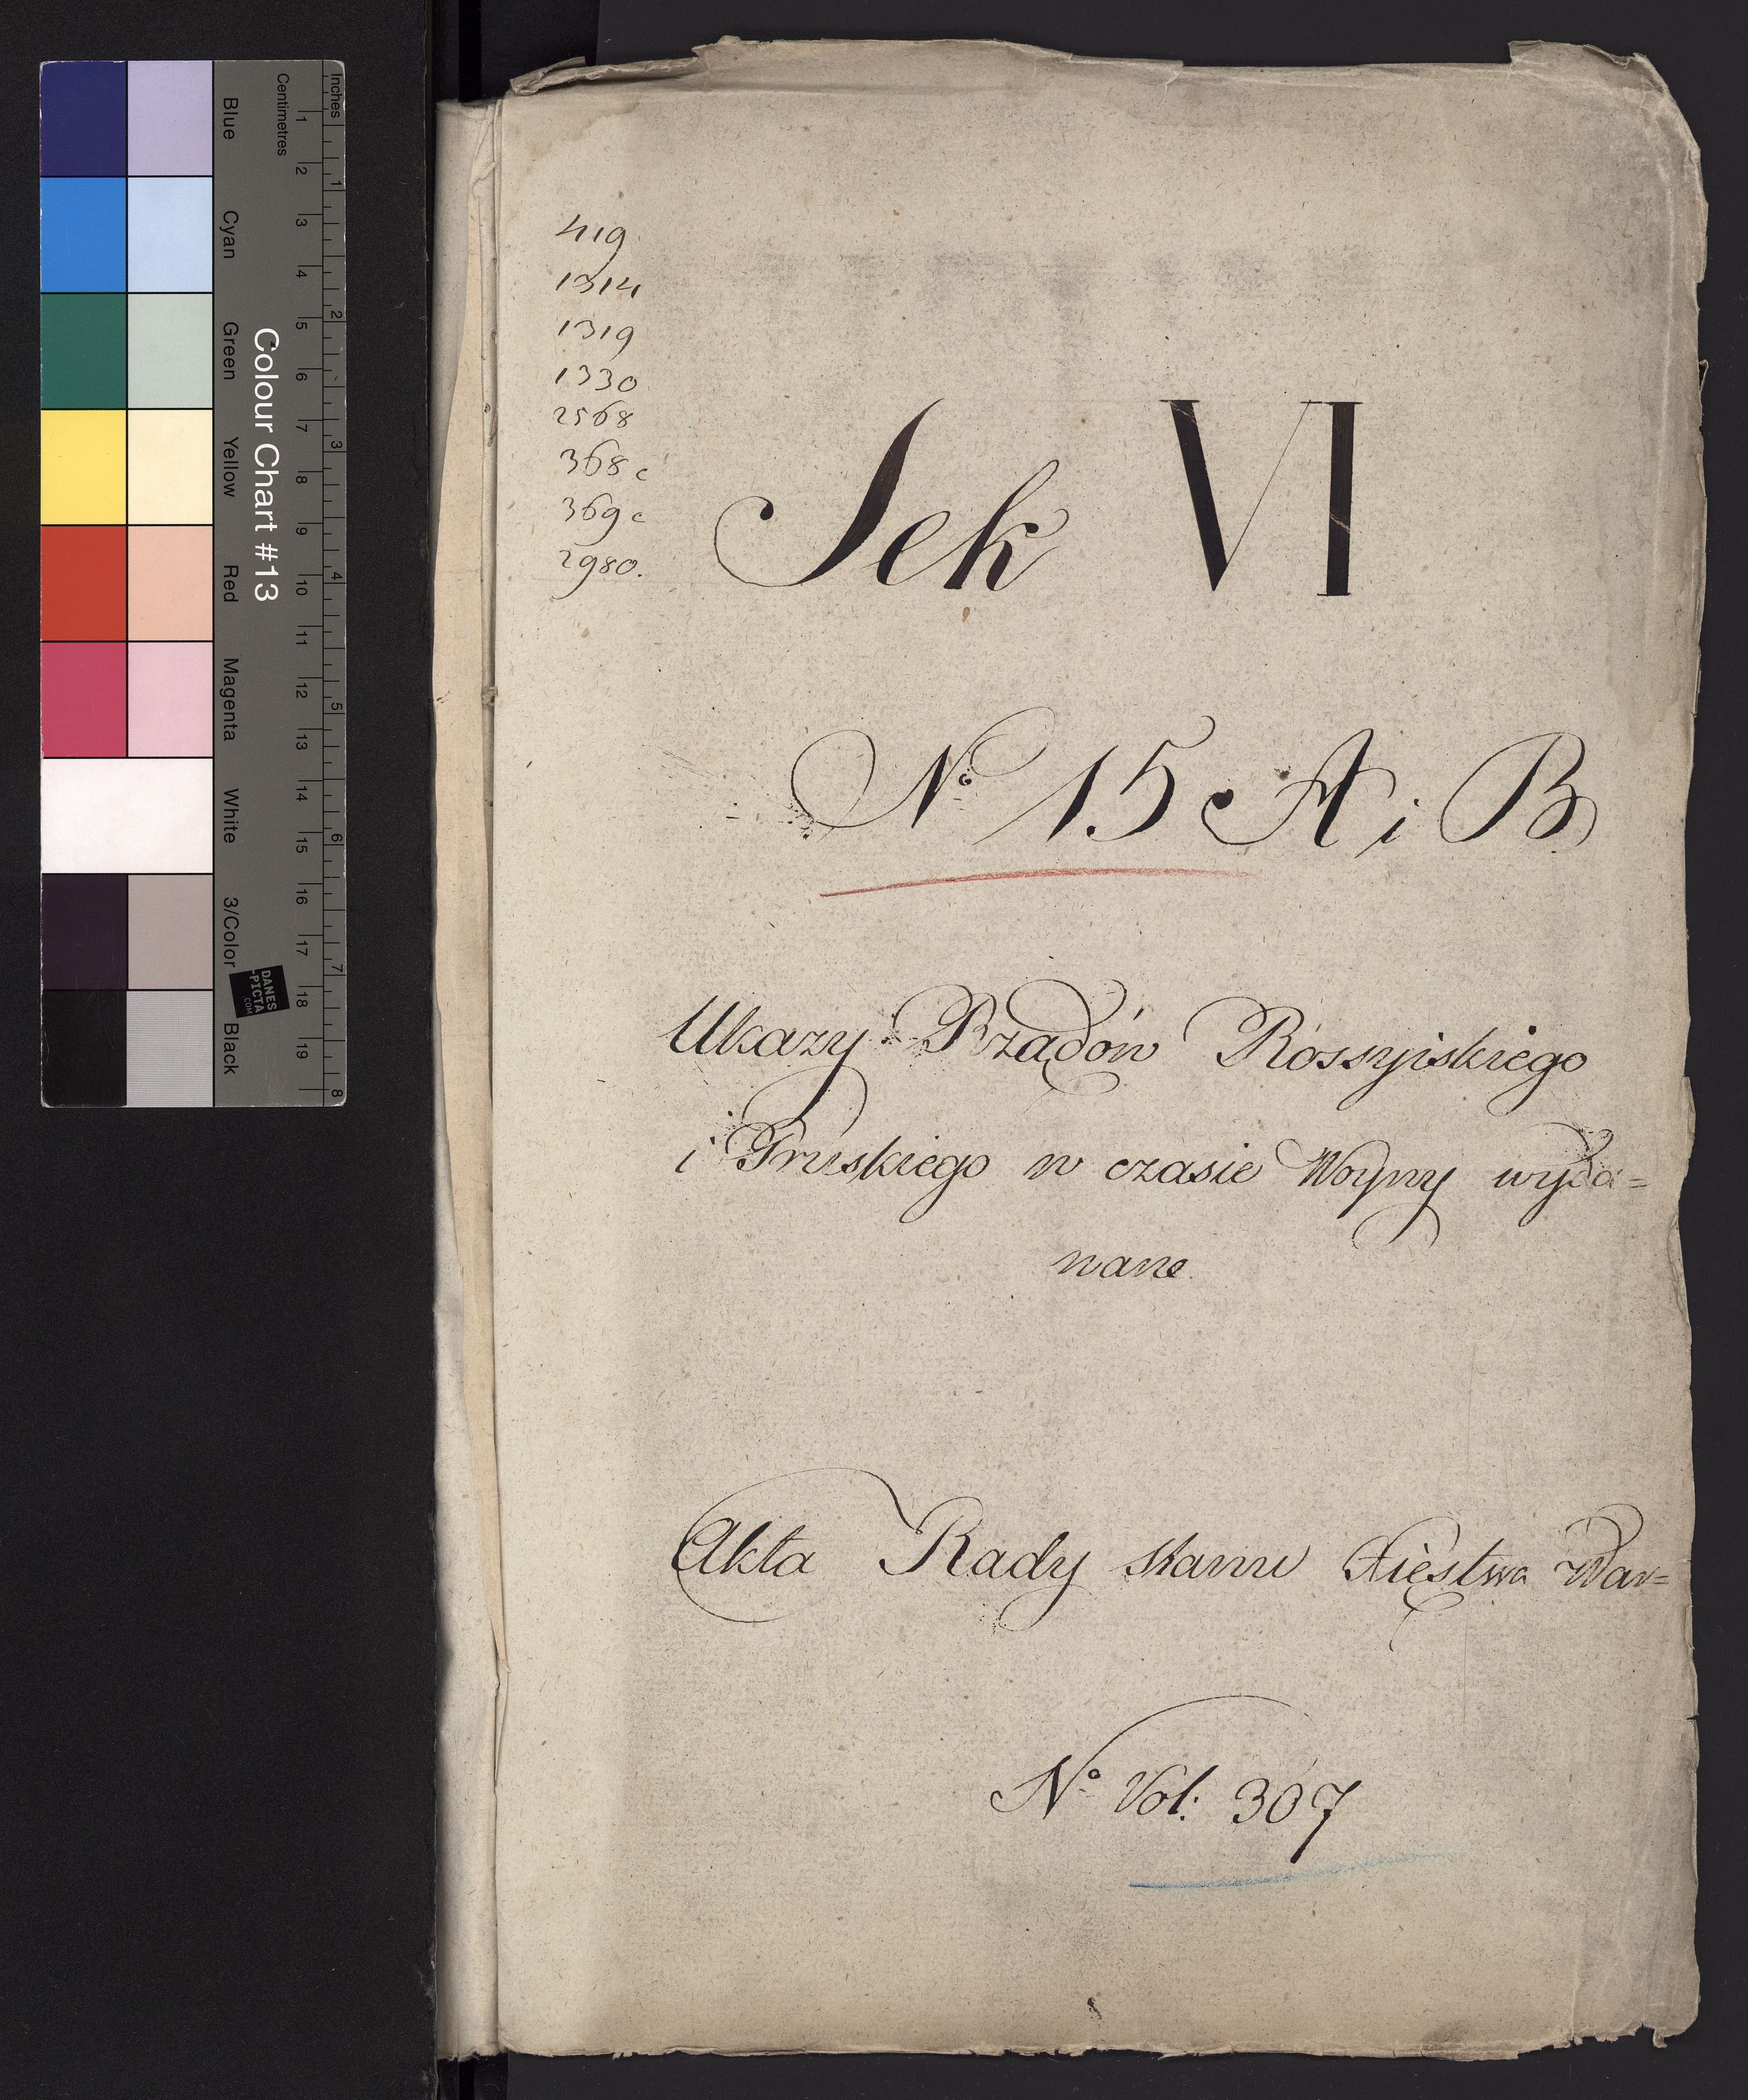 419
1314
1319
1330
2568
368 c
369 c
2980.
Sek VI
No 15 A i B
Ukazy Rządów Rossyiskiego
i Pruskiego w czasie Woyny wyda=
wane
Akta Rady stanu Xiestwa War=
No Vol: 307
Inches
Centimetres
1 2 3 4 5 6 7 8 9 10 11 12 13 14 15 16 17 18 19
1 2 3 4 5 6 7 8
Colour Chart #13
Blue
Cyan
Green
Yellow
Red
Magenta
White
3/Color
Black
DANES
-PICTA
.COM